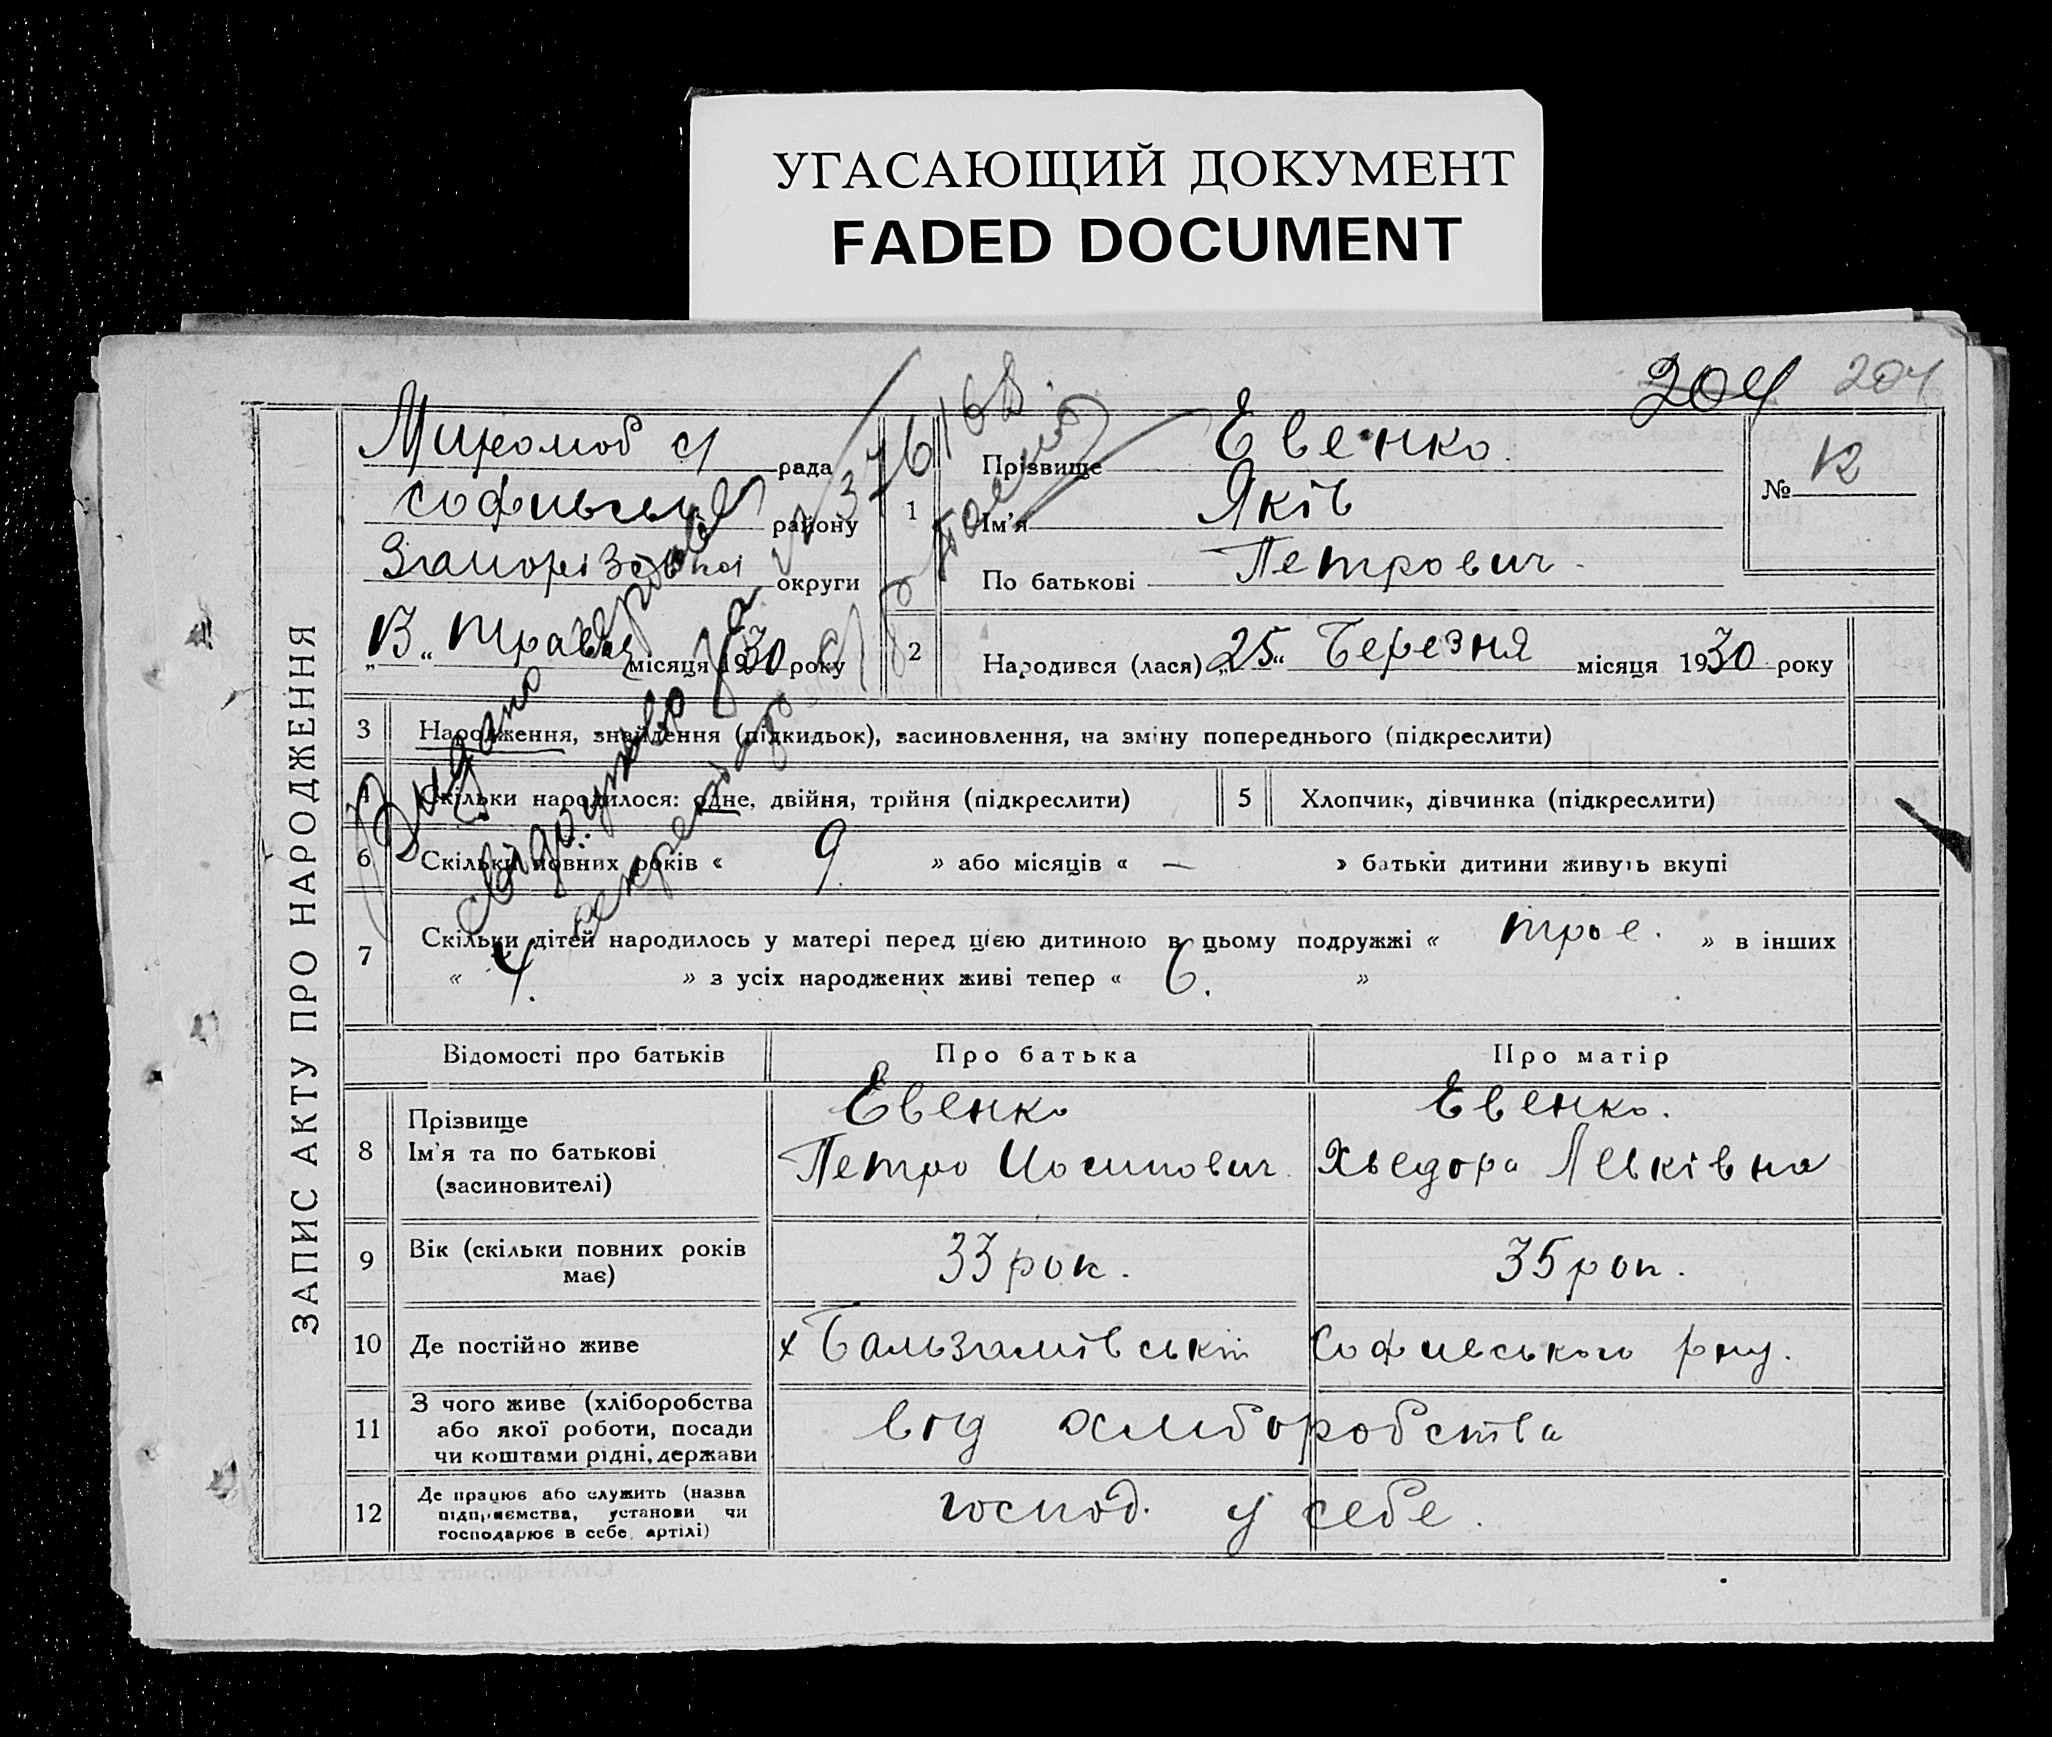 УГАСАЮЩИЙ ДОКУМЕНТ
FADED DOCUMENT
204 204
ЗАПИС АКТУ ПРО НАРОДЖЕННЯ
рада
району
округи
"13" травня місяця 1930 року
1
Прізвище Евенко.
Ім'я Яків
По батькові Петрович.
№ 12
2 Народився (лася) "25" Березня місяця 1930 року
3 Народження, знайдення (підкидьок), засиновлення, на зміну попереднього (підкреслити)
4 Скільки народилося: одне, двійня, трійня (підкреслити)
5 Хлопчик, дівчинка (підкреслити)
6 Скільки повних років « 9 » або місяців « — » батьки дитини живуть вкупі
7 Скільки дітей народилось у матері перед цією дитиною в цьому подружжі « троє. » в інших
« 4. » з усіх народжених живі тепер « 6. »
Відомості про батьків Про батька Про матір
8 Прізвище Евенко Евенко.
Ім'я та по батькові Петро Иосипович Хведора Левківна
(засиновителі)
9 Вік (скільки повних років має) 33 рок. 35 рок.
10 Де постійно живе х Бальзамівський Софиевського рну.
11 З чого живе (хліборобства
або якої роботи, посади
чи коштами рідні, держави
вид хлиборобства
12 Де працює або служить (назва
підприємства, установи чи
господарює в себе, артілі)
господ. у себе.
Видано